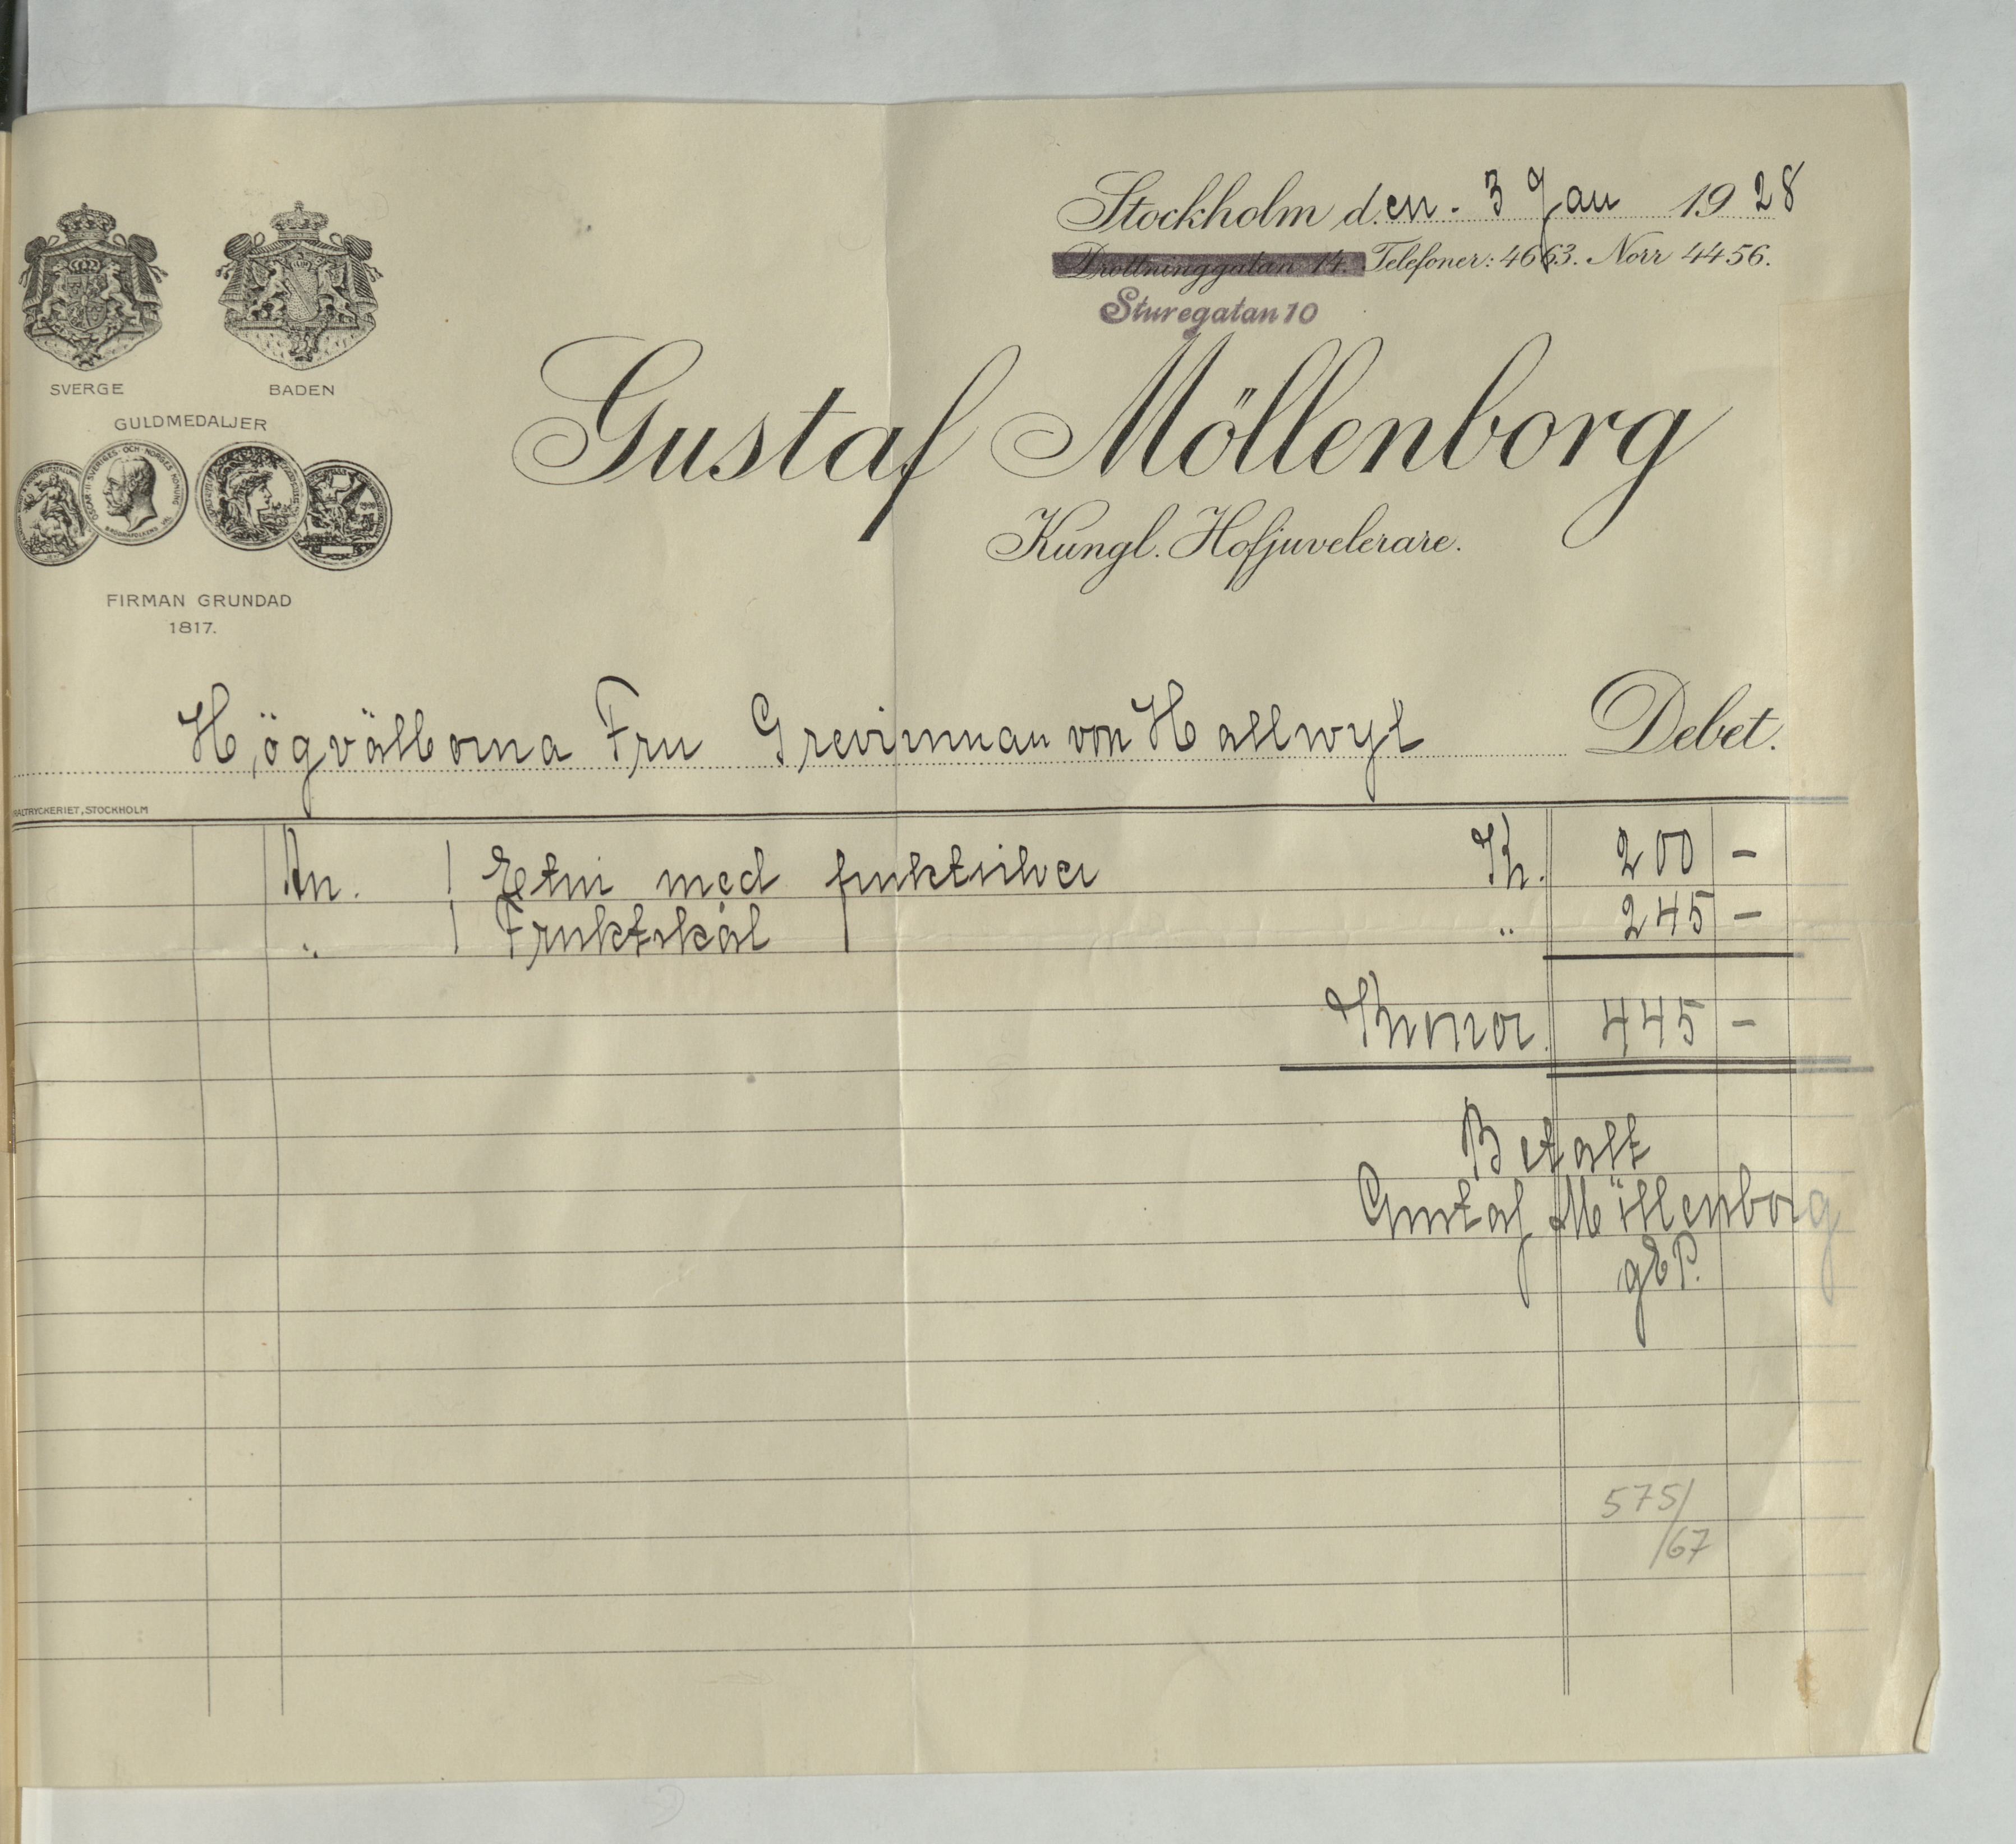 Stockholm d.en. 3 Jan 1928
Drottninggatan 14. Telefoner: 4663. Norr 4456.
Sturegatan 10
SVERGE BADEN
GULDMEDALJER
Gustaf Möllenborg
Kungl. Hofjuvelerare.
OSCAR II SVERIGES OCH NORGES KONUNG
BRÖDRAFOLKENS VÄL
FIRMAN GRUNDAD
1817.
Högvälborna Fru Grevinnan von Hallwyl Debet.
RALTRYCKERIET, STOCKHOLM
An. 1 Etui med fruktsilver Kr. 200 –
" 1 Fruktskål " 245 –
Kronor. 445 –
Betalt
Gustaf Möllenborg
gEP.
575/
/67